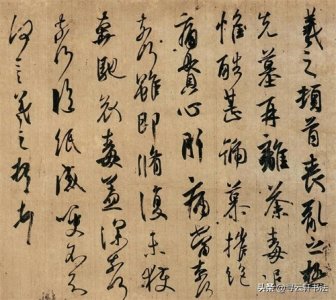 羲之頓首喪亂之極
先墓再離荼毒追
惟酷甚號慕摧絕
痛貫心肝痛當奈何
奈何雖即脩復未獲
奔馳哀毒益深奈何
奈何臨紙感哽不知
何言羲之頓首頓首
头条 @云轩书法